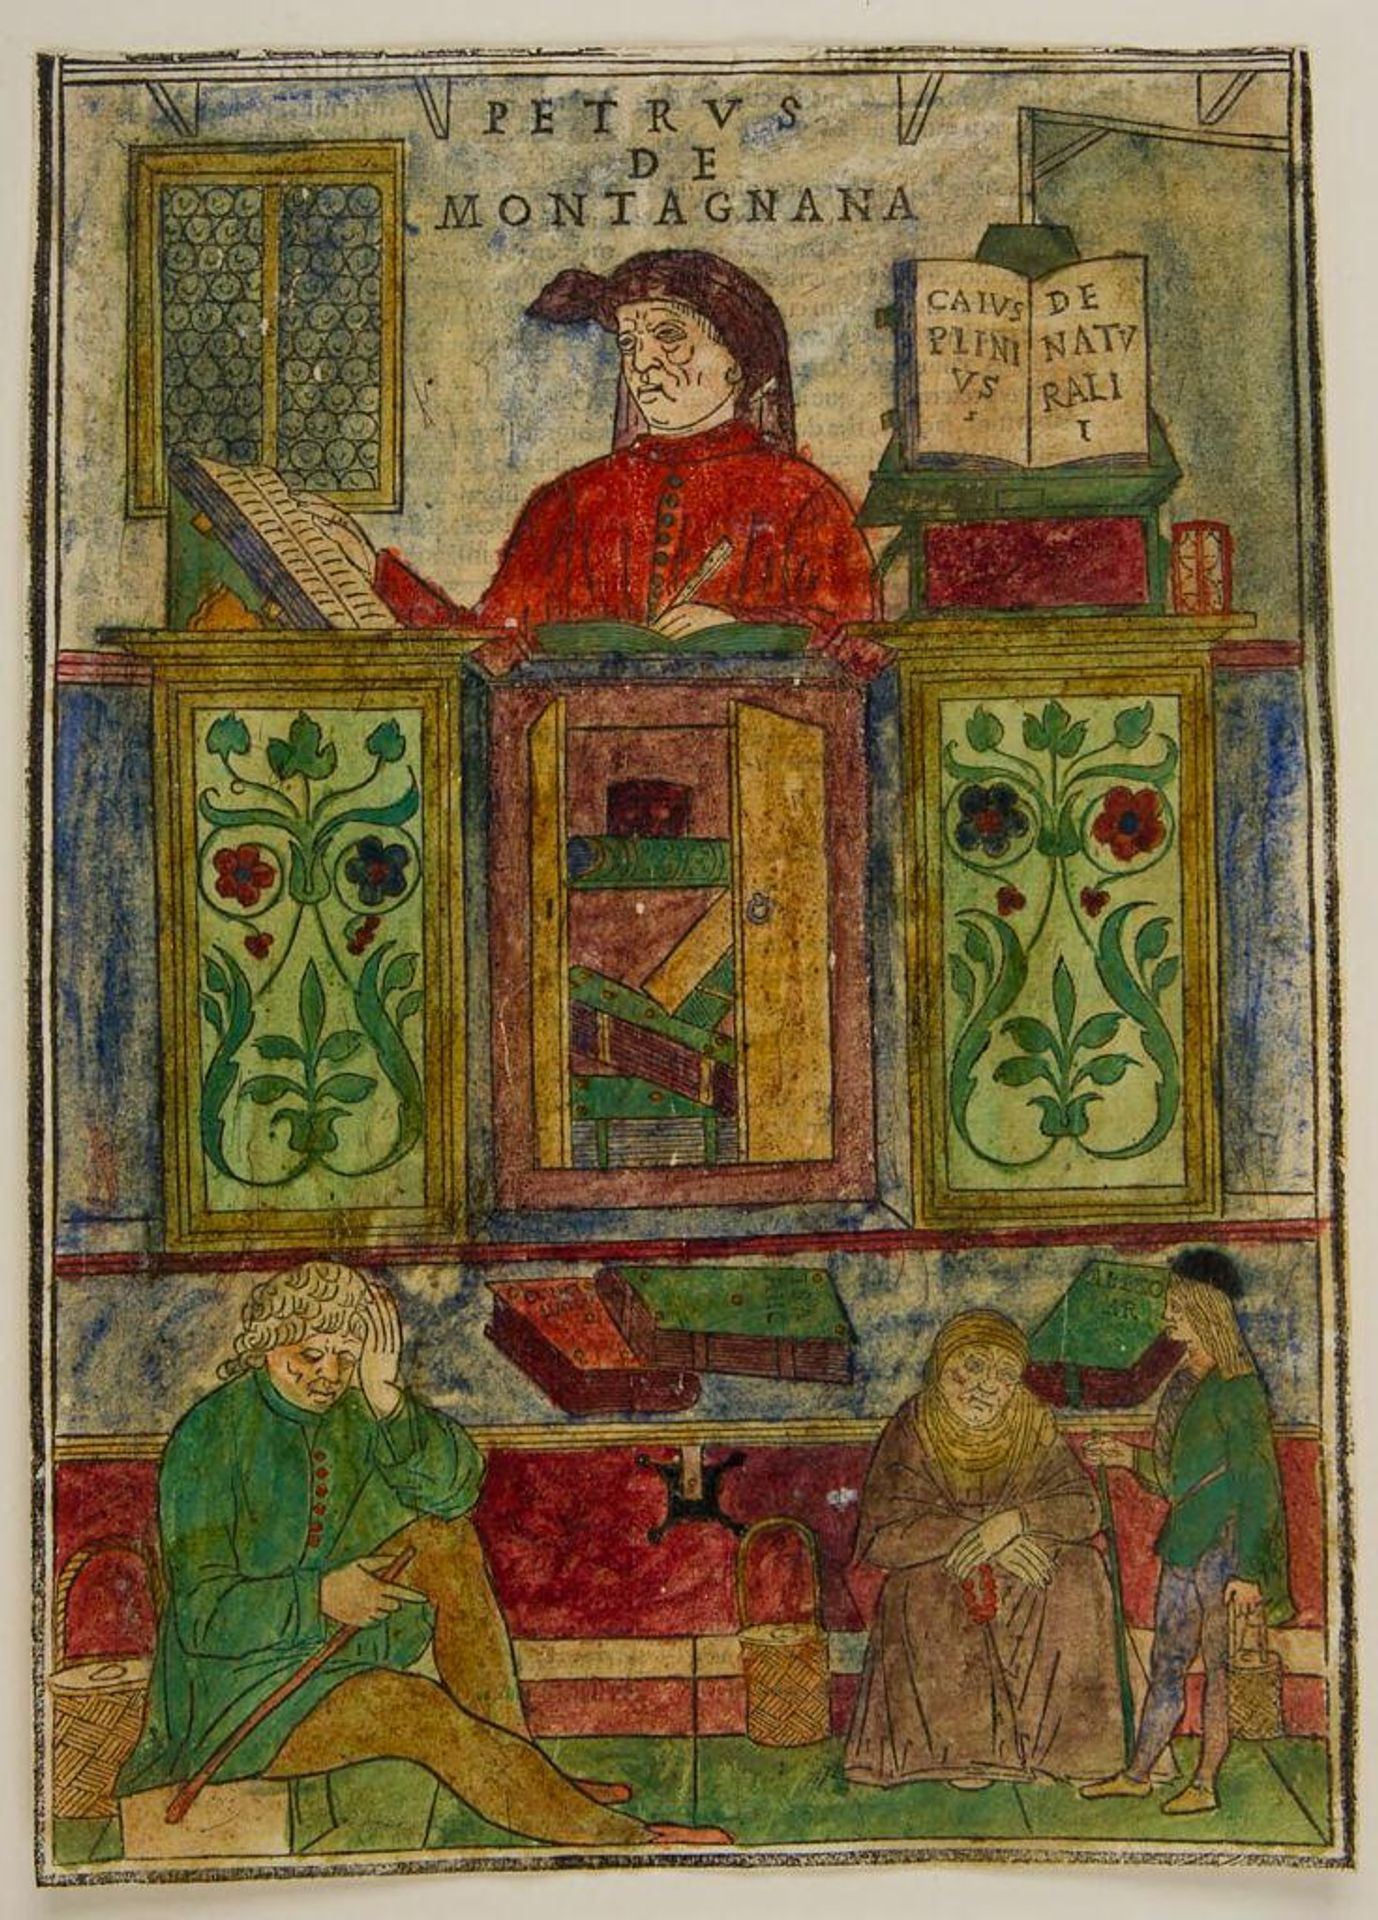 PETRVS
DE
MONTAGNANA
CAIVS
PLINI
VS
DE
NATV
RALI
I